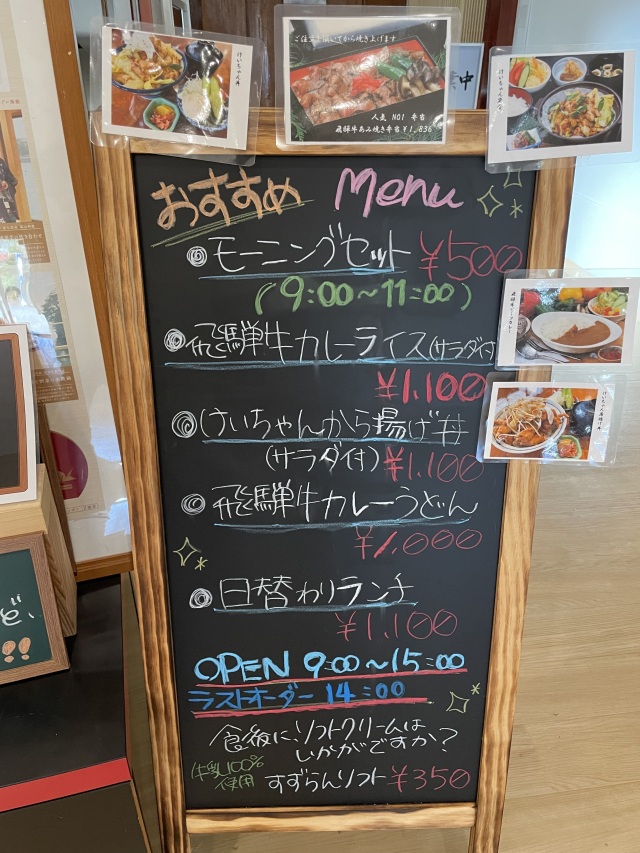 けいちゃん丼
ご注文頂いてから焼き上げます
人気 NO1 弁当
飛騨牛あみ焼き弁当¥1,836
中
おすすめ Menu
モーニングセット ¥500
(9:00~11:00)
飛騨牛カレーライス(サラダ付
¥1,100
けいちゃんから揚げ丼
(サラダ付) ¥1,100
飛騨牛カレーうどん
¥1,000
日替わりランチ
¥1,100
OPEN 9:00~15:00
ラストオーダー 14:00
食後にソフトクリームは
いかがですか?
牛乳100%
使用
すずらんソフト ¥350